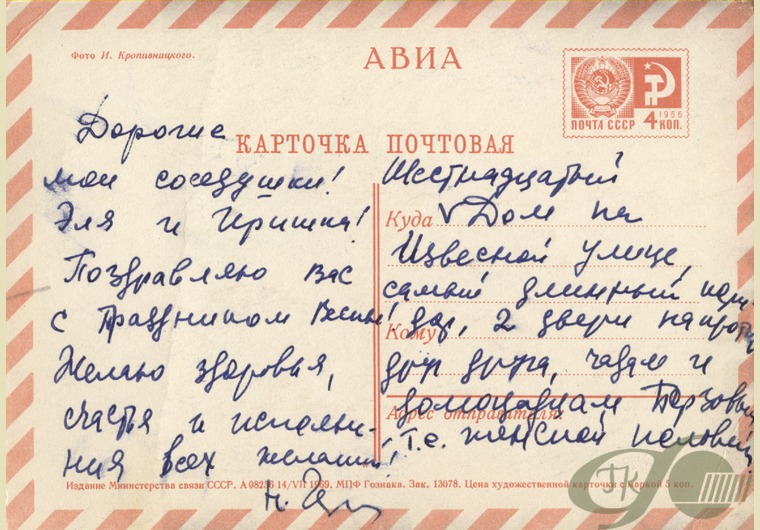 Фото И. Кропивницкого.
АВИА
1966
ПОЧТА СССР 4 КОП.
КАРТОЧКА ПОЧТОВАЯ
Дорогие
мои соседушки!
Эля и Иришка!
Поздравляю Вас
с Праздником Весны!
Желаю здоровья,
счастья и исполне-
ния всех желаний!
Шестнадцатый
Куда
Дом на
Извесной улице,
самый длинный кори-
Кому
дор, 2 двери напротив
друг друга, чадам и
домочадцам
Адрес отправителя:
т.е. женской половине
Издание Министерства связи СССР. А 08236 14/VII 1969. МПФ Гознака. Зак. 13078. Цена художественной карточки с маркой 5 коп.